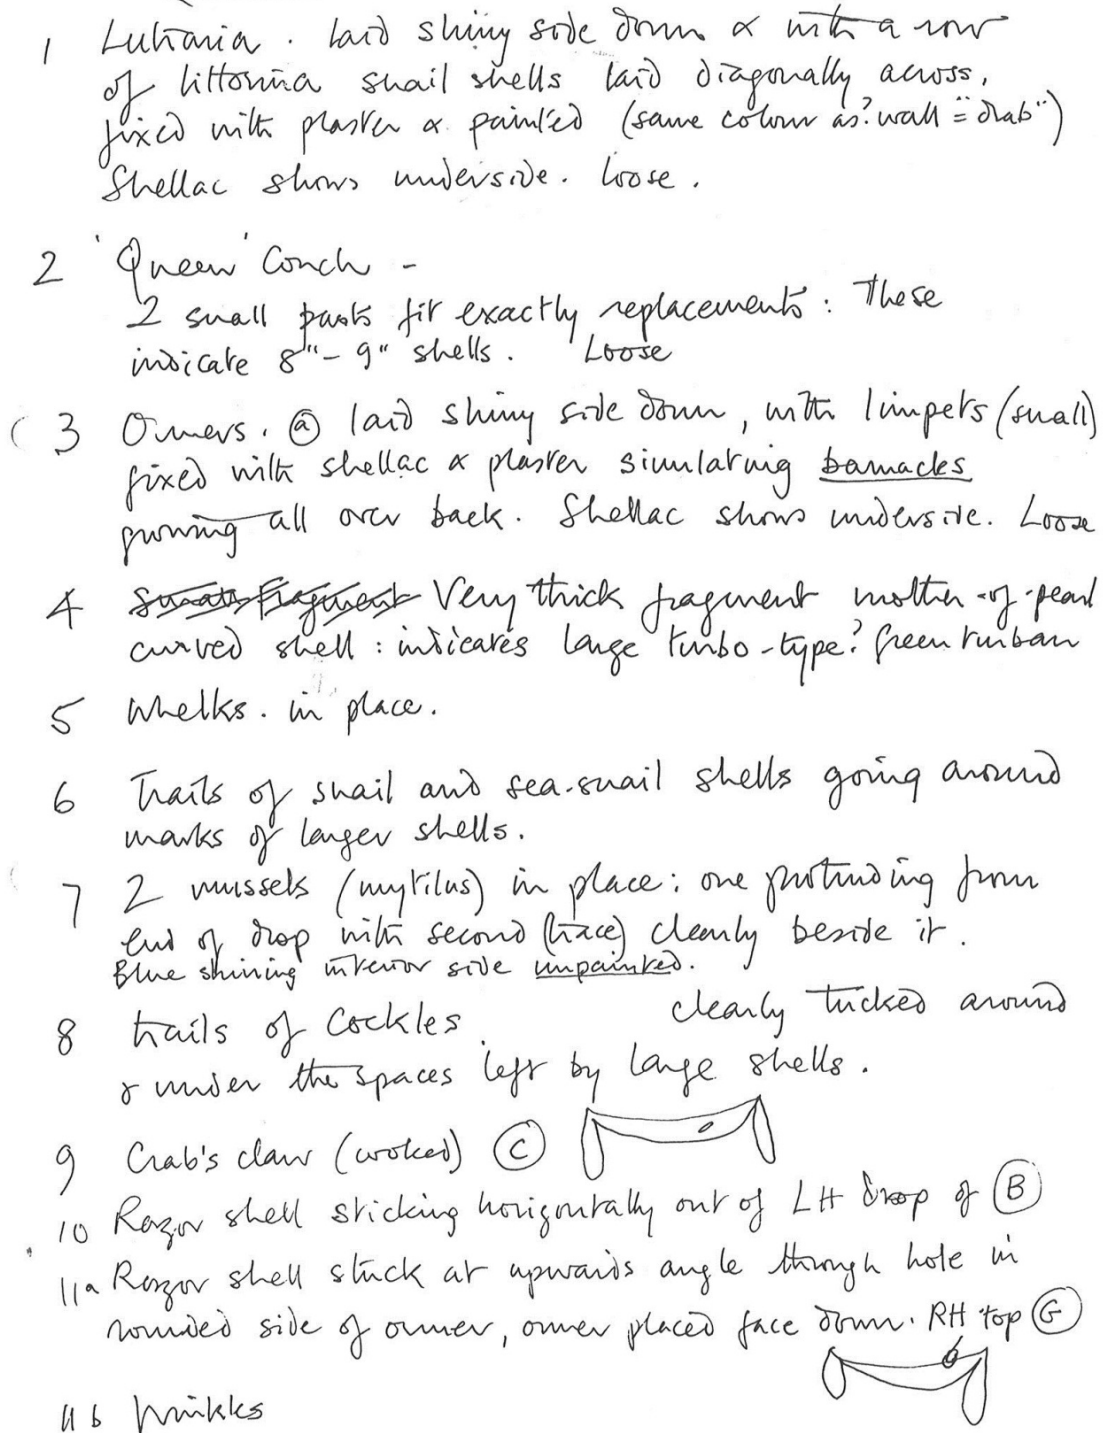 1 Lutraria. laid shiny side down & with a row
of littorina snail shells laid diagonally across,
fixed with plaster & painted (same colour as? wall = "drab")
Shellac shows underside. Loose.
2 'Queen' Conch -
2 small parts fit exactly replacements: These
indicate 8"- 9" shells. Loose
(3 Ormers. ⓐ laid shiny side down, with limpets (small)
fixed with shellac & plaster simulating barnacks
growing all over back. Shellac shows underside. Loose
4 Small Fragment Very thick fragment mother-of-pearl
curved shell: indicates large turbo-type? Green turban
5 Whelks. in place.
6 Trails of snail and sea-snail shells going around
marks of larger shells.
7 2 mussels (mytilus) in place: one protruding from
end of drop with second (trace) clearly beside it.
Blue shining interior side unpainted.
8 trails of Cockles clearly tucked around
& under the spaces left by large shells.
9 Crab's claw (cooked) Ⓒ
10 Razor shell sticking horizontally out of LH drop of Ⓑ
11a Razor shell stuck at upwards angle through hole in
rounded side of ormer, ormer placed face down. RH top Ⓖ
11b Winkles